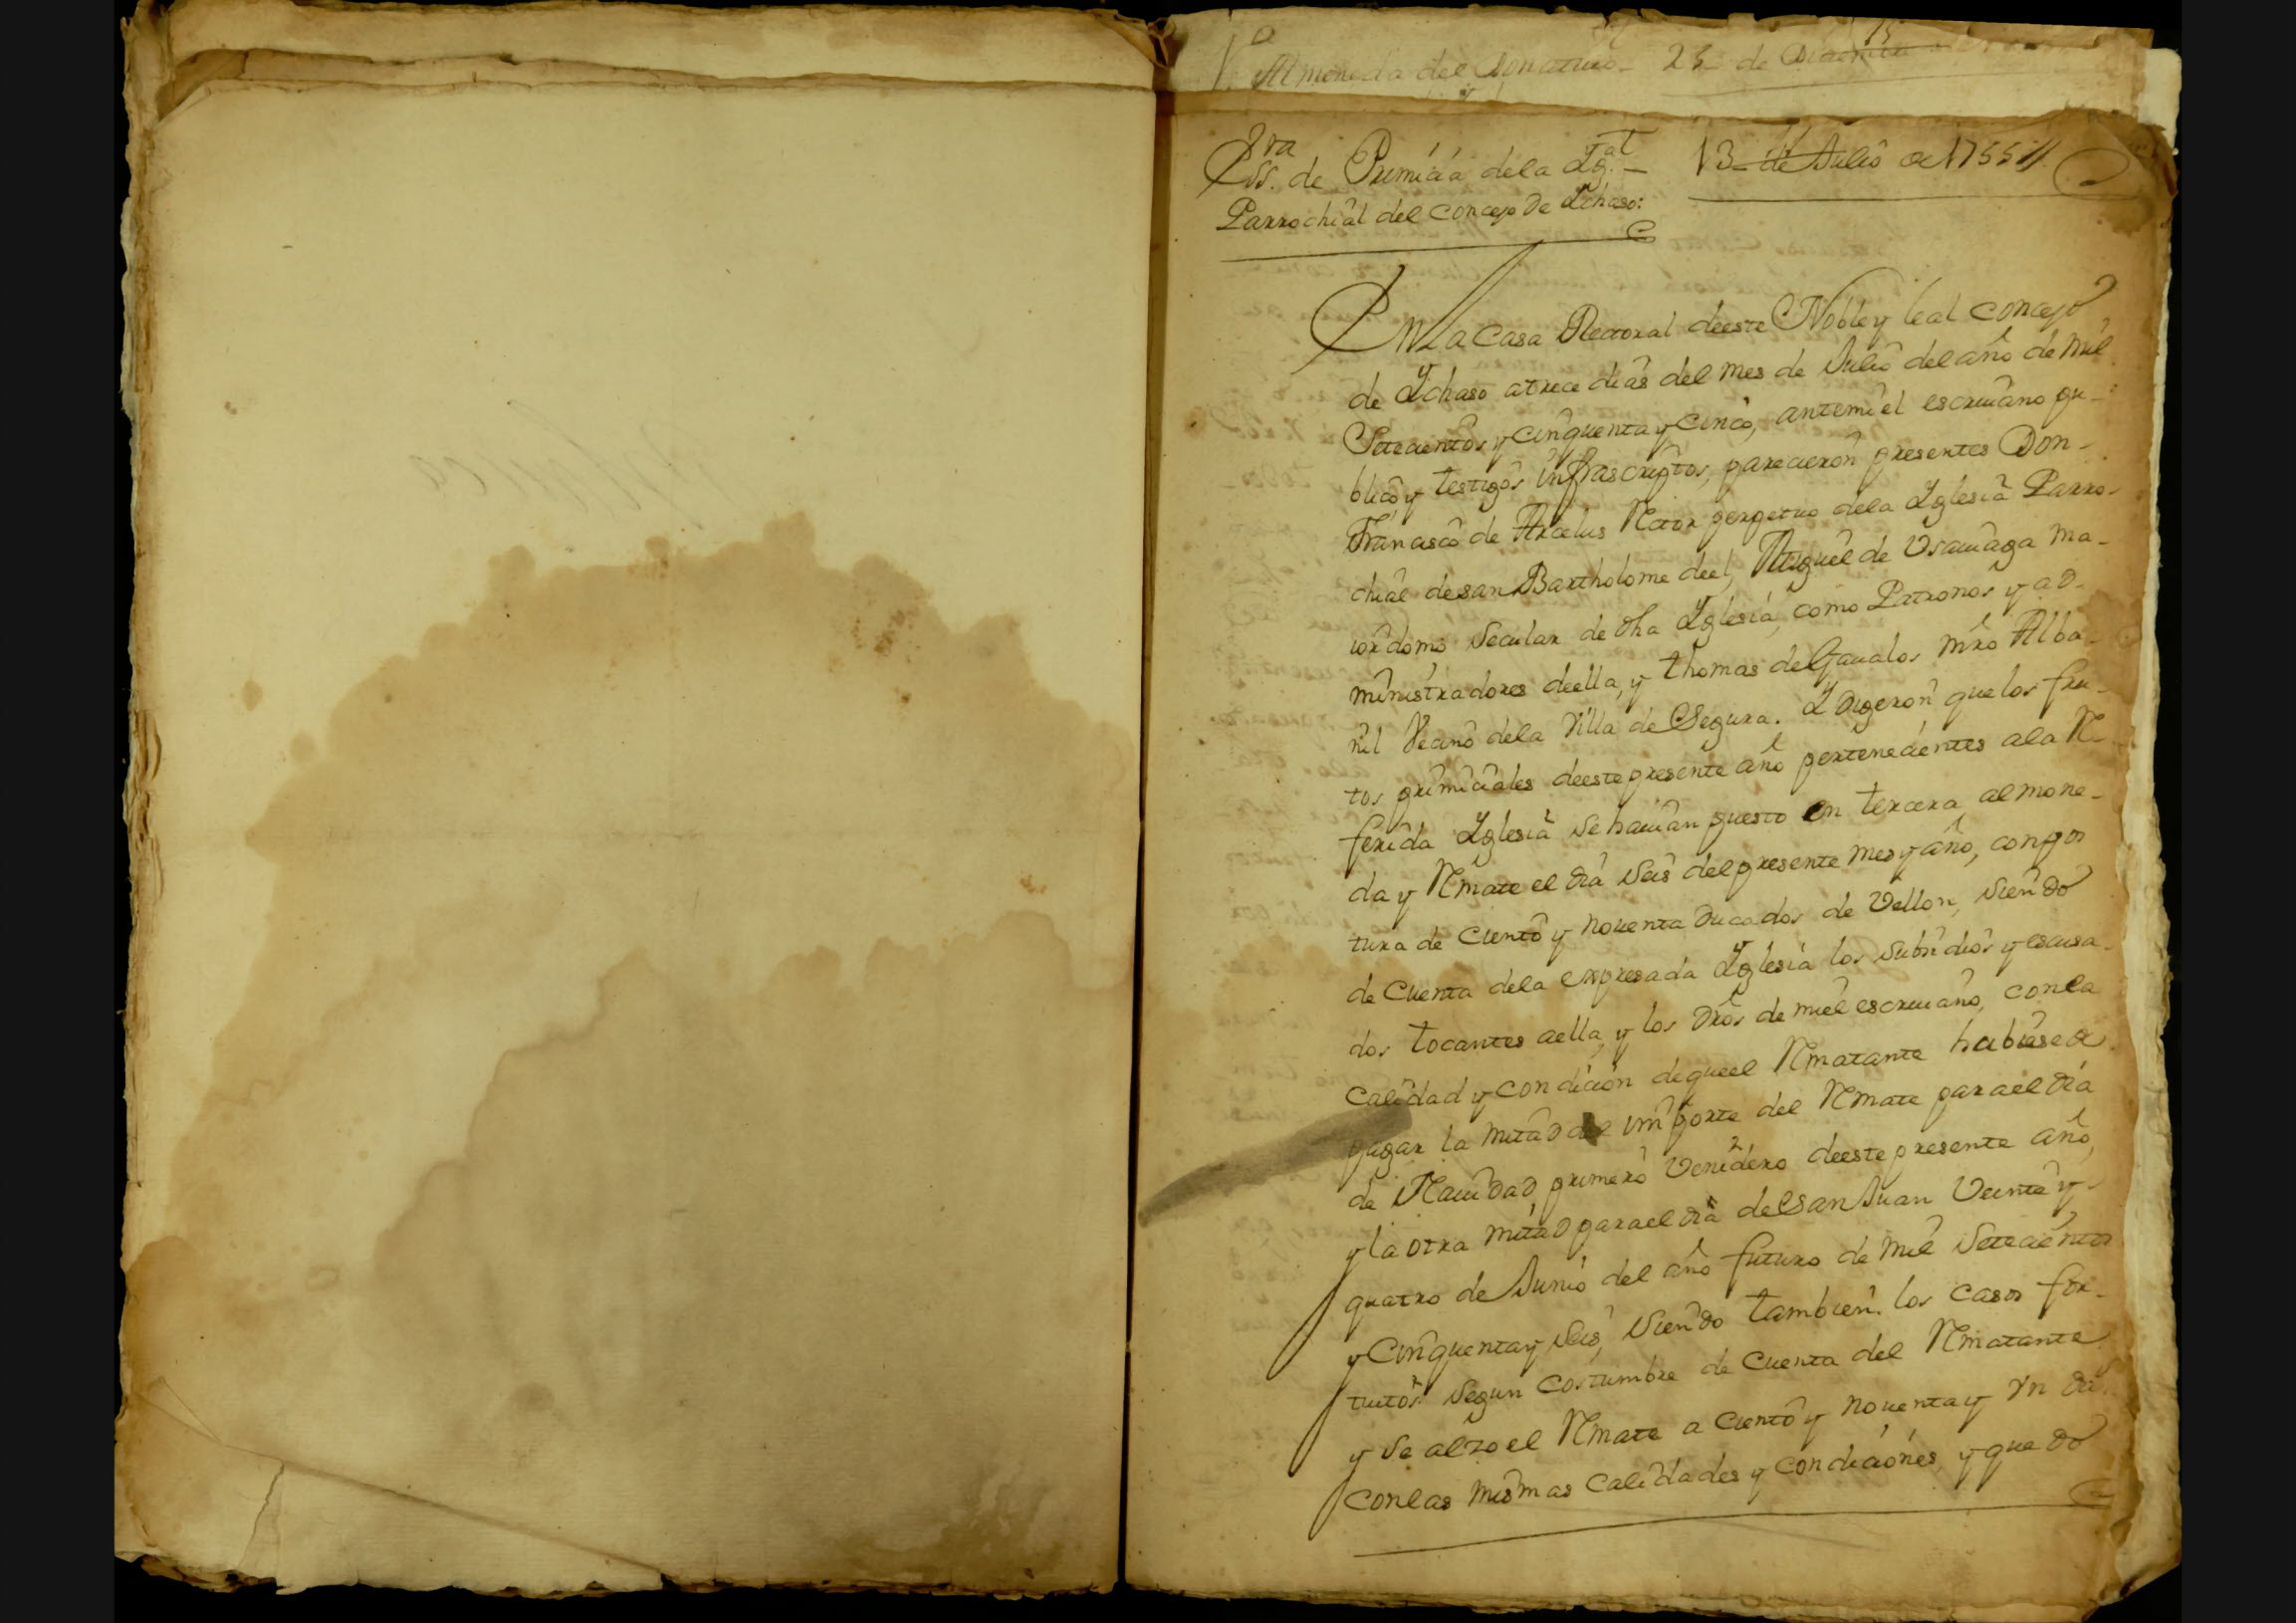 Almoneda del Donativo - 25 de Diciembre
Essra. de Primicia dela Igl.ª - 13 de Julio de 1755 //
Parrochial del Concejo de Ichaso:
En La Casa Rectoral deeste Noble y leal Concejo
de Ychaso atrece dias del mes de Julio del año de mil
Setecientos y Cinquenta y Cinco, antemi el escriuano pu-
blico y testigos infrascriptos, parecieron presentes Don
Francisco de Arcelus Retor perpetuo dela Yglesia Parro-
chial desan Bartholome deel, Miguel de Vsauiaga ma-
iordomo Secular de dha Yglesia, como Patronos y ad-
ministradores deella, y thomas de Gaualos mro Alba-
nil Vecino dela Villa de Segura. Y Digeron que los fru-
tos primiciales deeste presente año pertenecientes ala Re-
ferida Yglesia se hauian puesto en tercera almone-
da y Rmate el dia seis del presente mes y año, con pos
tura de Ciento y nouenta Ducados de Vellon, siendo
de Cuenta dela expresada Yglesia los subsidios y escusa-
dos tocantes aella, y los dros de miel escriuano, conla
Calidad y Condicion de queel Rmatante hubiese de
pagar la mitad del importe del Rmate parael dia
de Nauidad primero Venidero deeste presente año,
y la otra mitad parael dia de San Juan Veinte y
quatro de Junio del año futuro de mil Setecientos
y Cinquenta y Seis, Siendo tambien los Casos for-
tuitos segun Costumbre de Cuenta del Rmatante
y se alzo el Rmate a Ciento y nouenta y Vn du
Conlas mismas Calidades y Condiciones, y quedo